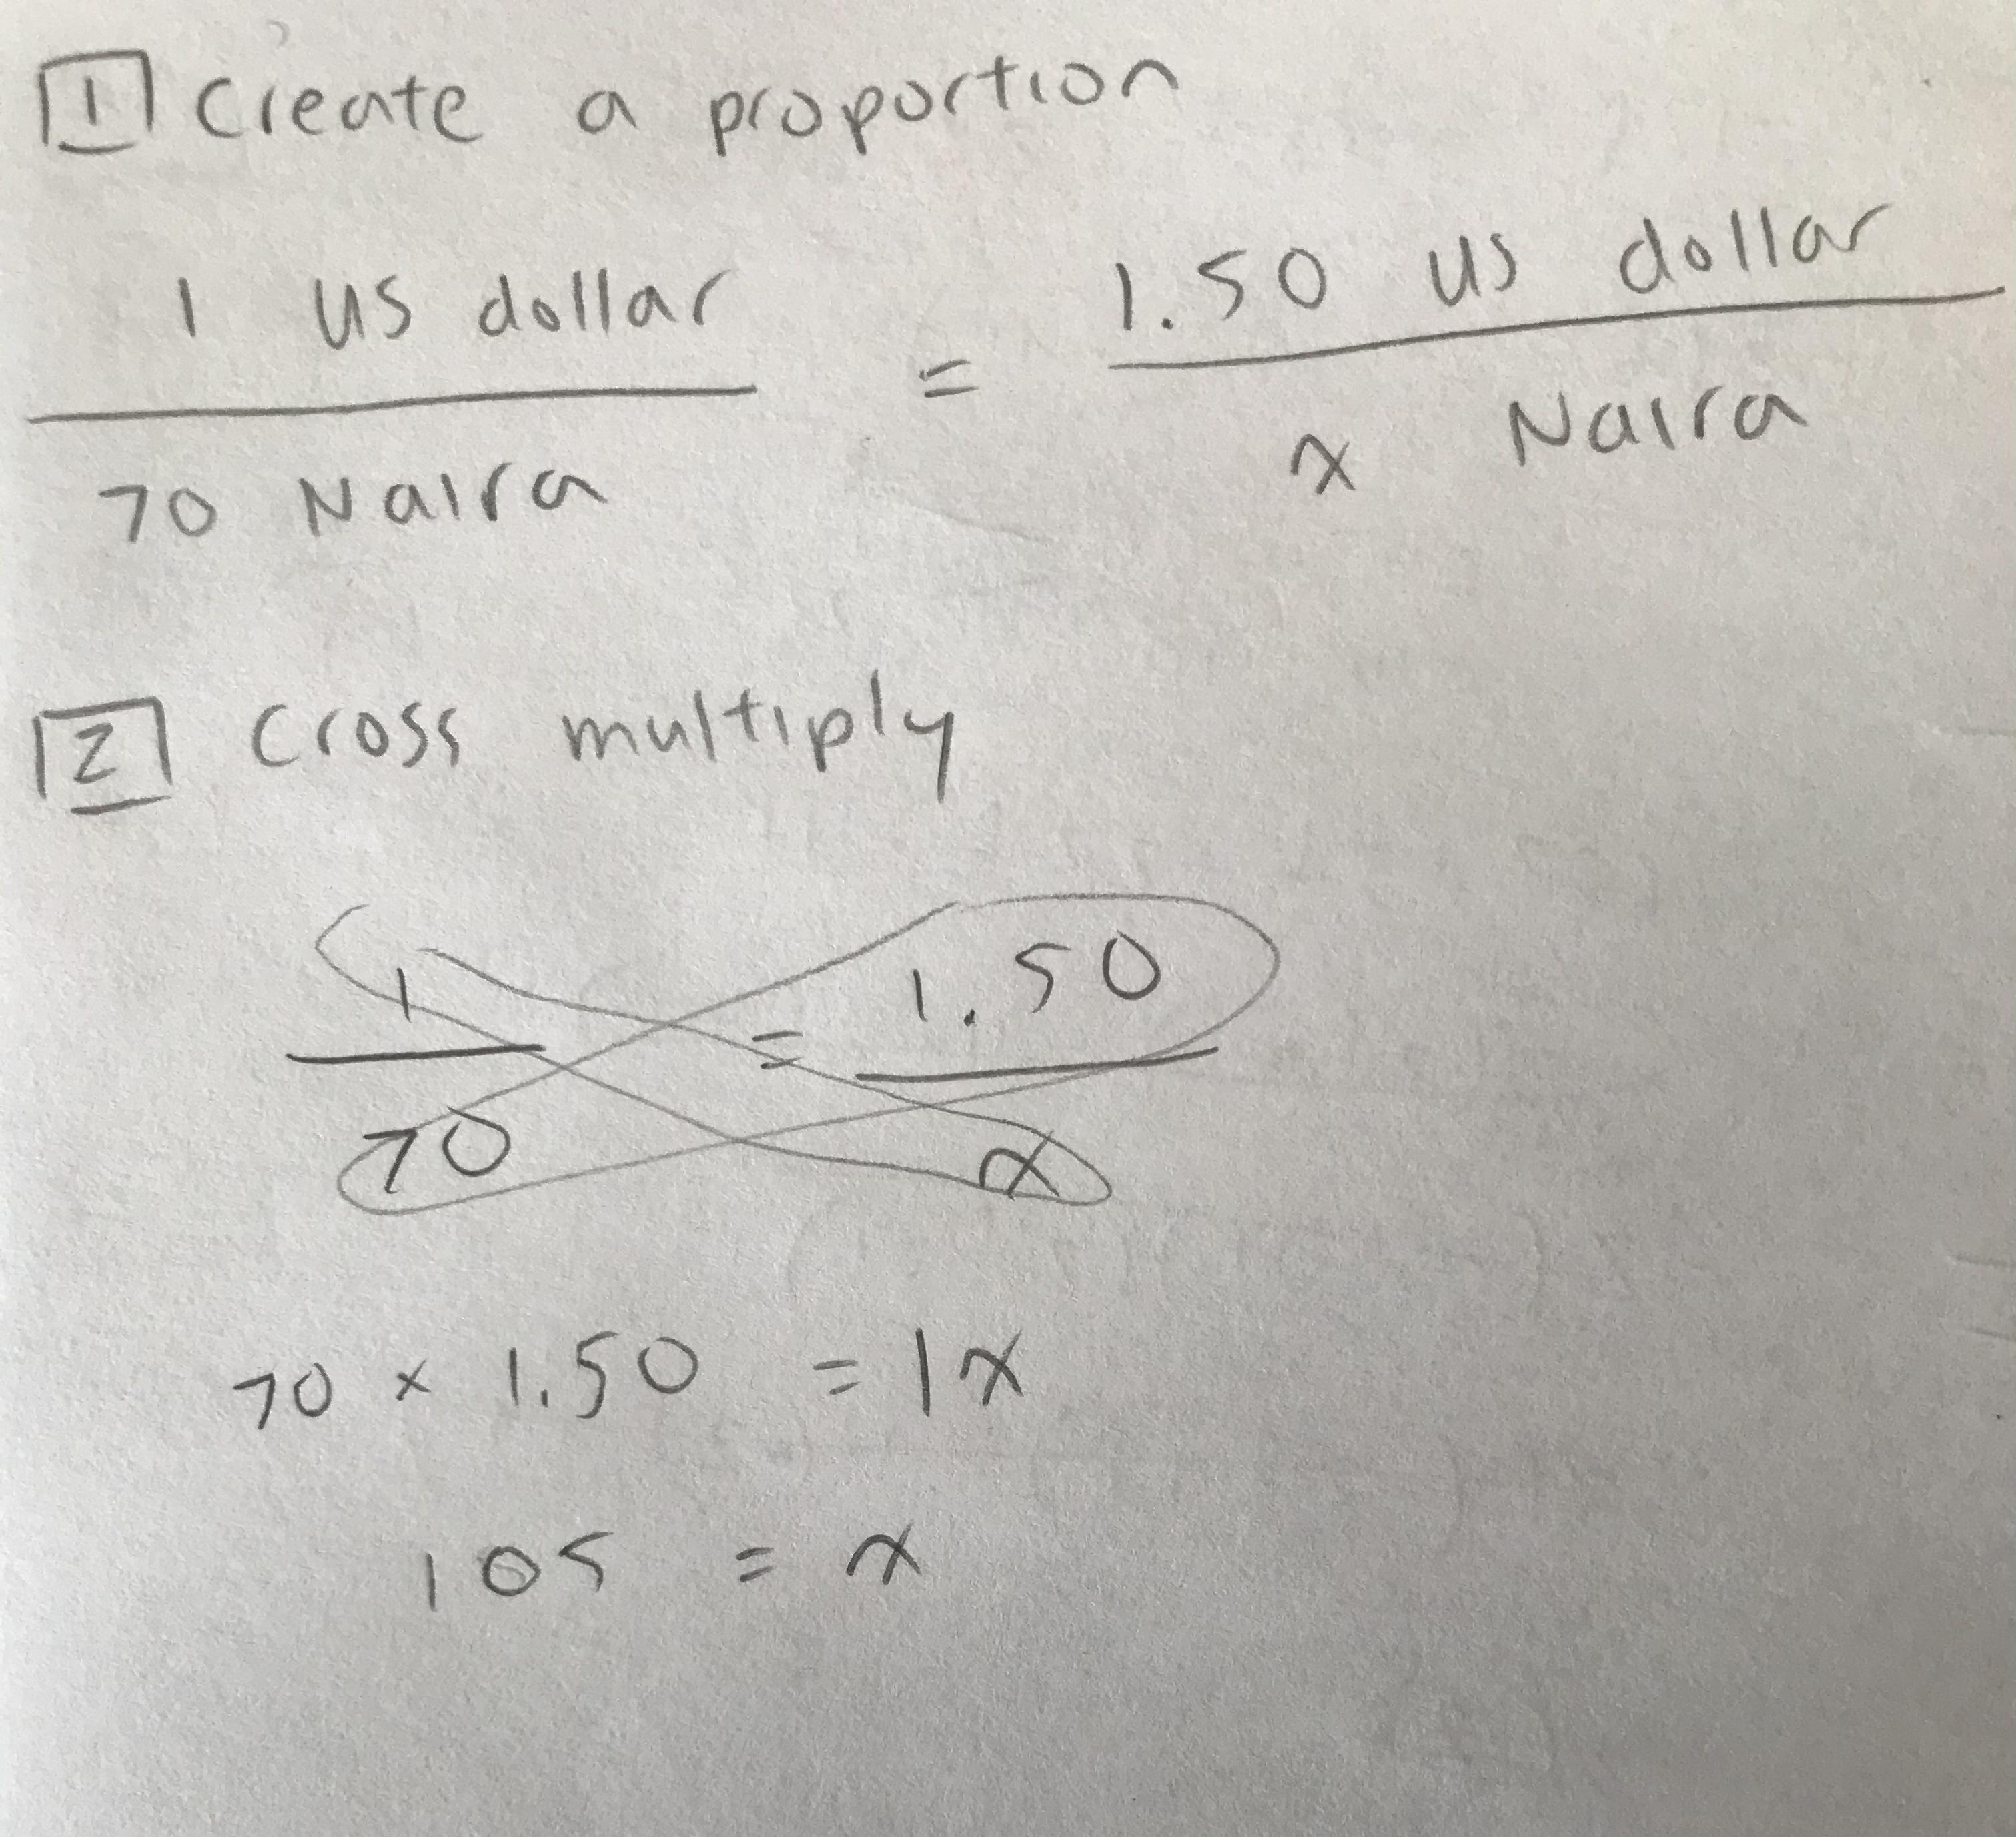 1 Create a proportion
1 US dollar / 70 Naira = 1.50 US dollar / x Naira
2 Cross multiply
1 / 70 = 1.50 / x
70 × 1.50 = 1x
105 = x